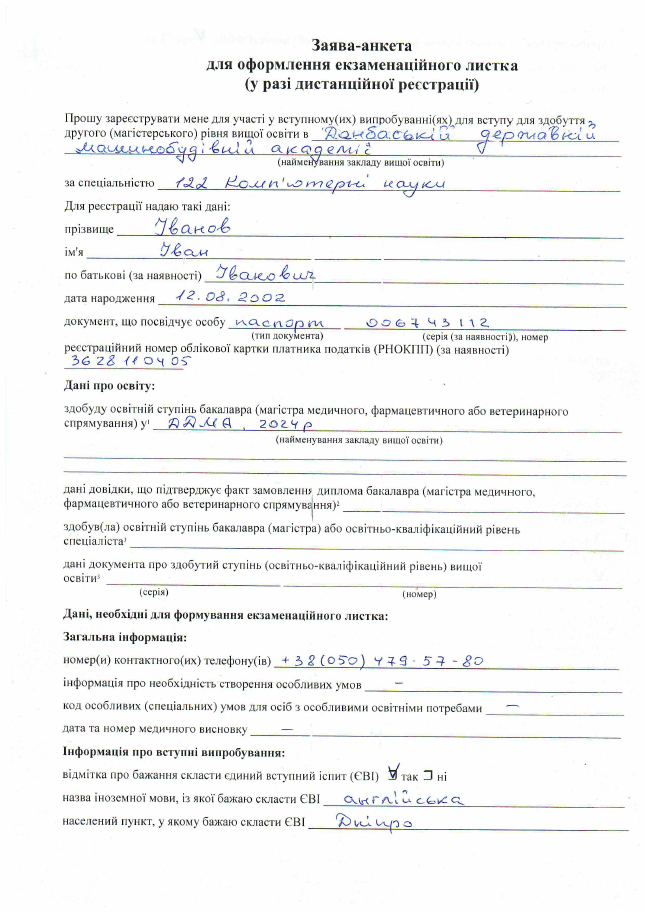 Заява-анкета
для оформлення екзаменаційного листка
(у разі дистанційної реєстрації)
Прошу зареєструвати мене для участі у вступному(их) випробуванні(ях) для вступу для здобуття
другого (магістерського) рівня вищої освіти в Донбаській державній
машинобудівній академії
(найменування закладу вищої освіти)
за спеціальністю 122 Комп'ютерні науки
Для реєстрації надаю такі дані:
прізвище Іванов
ім'я Іван
по батькові (за наявності) Іванович
дата народження 12.08.2002
документ, що посвідчує особу паспорт 006743112
(тип документа) (серія (за наявності)), номер
реєстраційний номер облікової картки платника податків (РНОКПП) (за наявності)
3628110405
Дані про освіту:
здобуду освітній ступінь бакалавра (магістра медичного, фармацевтичного або ветеринарного
спрямування) у¹ ДДМА, 2024р
(найменування закладу вищої освіти)
дані довідки, що підтверджує факт замовлення диплома бакалавра (магістра медичного,
фармацевтичного або ветеринарного спрямування)²
здобув(ла) освітній ступінь бакалавра (магістра) або освітньо-кваліфікаційний рівень
спеціаліста³
дані документа про здобутий ступінь (освітньо-кваліфікаційний рівень) вищої
освіти³
(серія) (номер)
Дані, необхідні для формування екзаменаційного листка:
Загальна інформація:
номер(и) контактного(их) телефону(ів) +38(050)479-57-80
інформація про необхідність створення особливих умов –
код особливих (спеціальних) умов для осіб з особливими освітніми потребами –
дата та номер медичного висновку –
Інформація про вступні випробування:
відмітка про бажання скласти єдиний вступний іспит (ЄВІ) так ні
назва іноземної мови, із якої бажаю скласти ЄВІ англійська
населений пункт, у якому бажаю скласти ЄВІ Дніпро